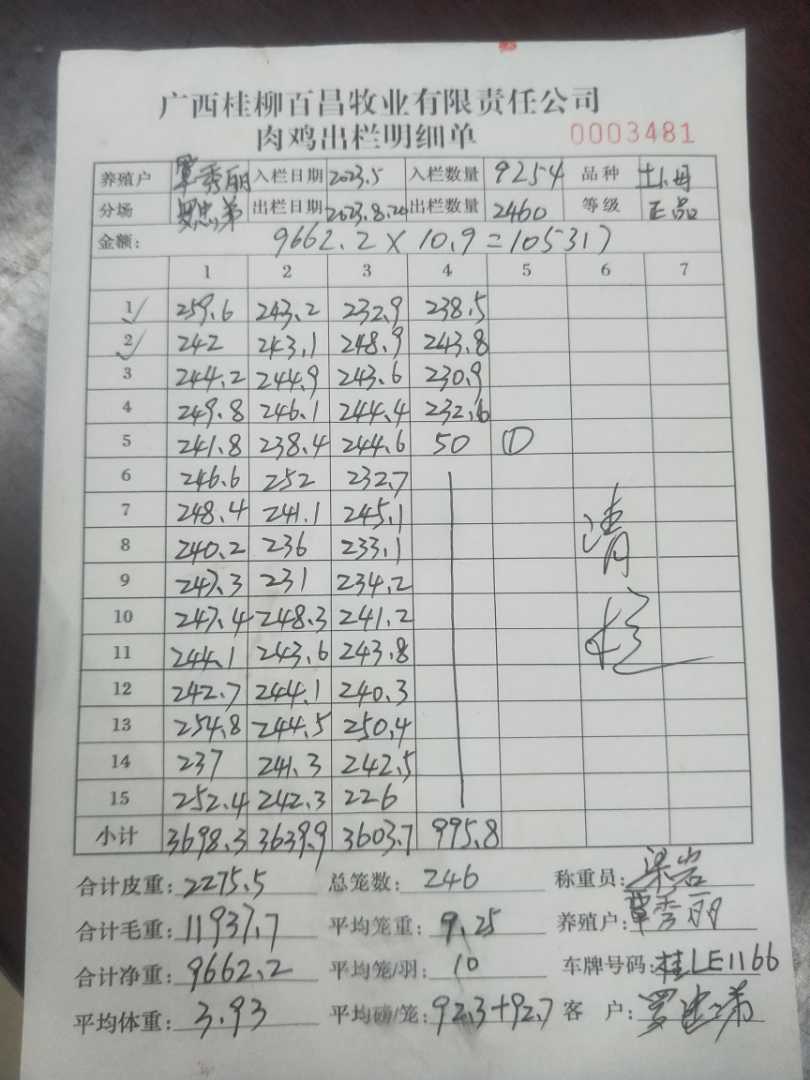 广西桂柳百昌牧业有限责任公司
肉鸡出栏明细单 0003481
养殖户 覃秀丽 入栏日期 2023.5 入栏数量 9254 品种 土小母
分场 罗忠弟 出栏日期 2023.8.20 出栏数量 2460 等级 正品
金额: 9662.2 X 10.9 = 105317
1 2 3 4 5 6 7
1 259.6 243.2 232.9 238.5
2 242 243.1 248.9 243.8
3 244.2 244.9 243.6 230.9
4 249.8 246.1 244.4 232.6
5 241.8 238.4 244.6 50 ①
6 246.6 252 232.7
7 248.4 241.1 245.1
8 240.2 236 233.1
9 247.3 231 234.2
10 247.4 248.3 241.2
11 244.1 243.6 243.8
12 242.7 244.1 240.3
13 254.8 244.5 250.4
14 237 241.3 242.5
15 252.4 242.3 226
清
小计 3698.3 3639.9 3603.7 995.8
合计皮重: 2275.5 总笼数: 246 称重员: 梁岩
合计毛重: 11937.7 平均笼重: 9.25 养殖户: 覃秀丽
合计净重: 9662.2 平均笼/羽: 10 车牌号码: 桂LE1166
平均体重: 3.93 平均磅/笼: 92.3+92.7 客 户: 罗忠弟